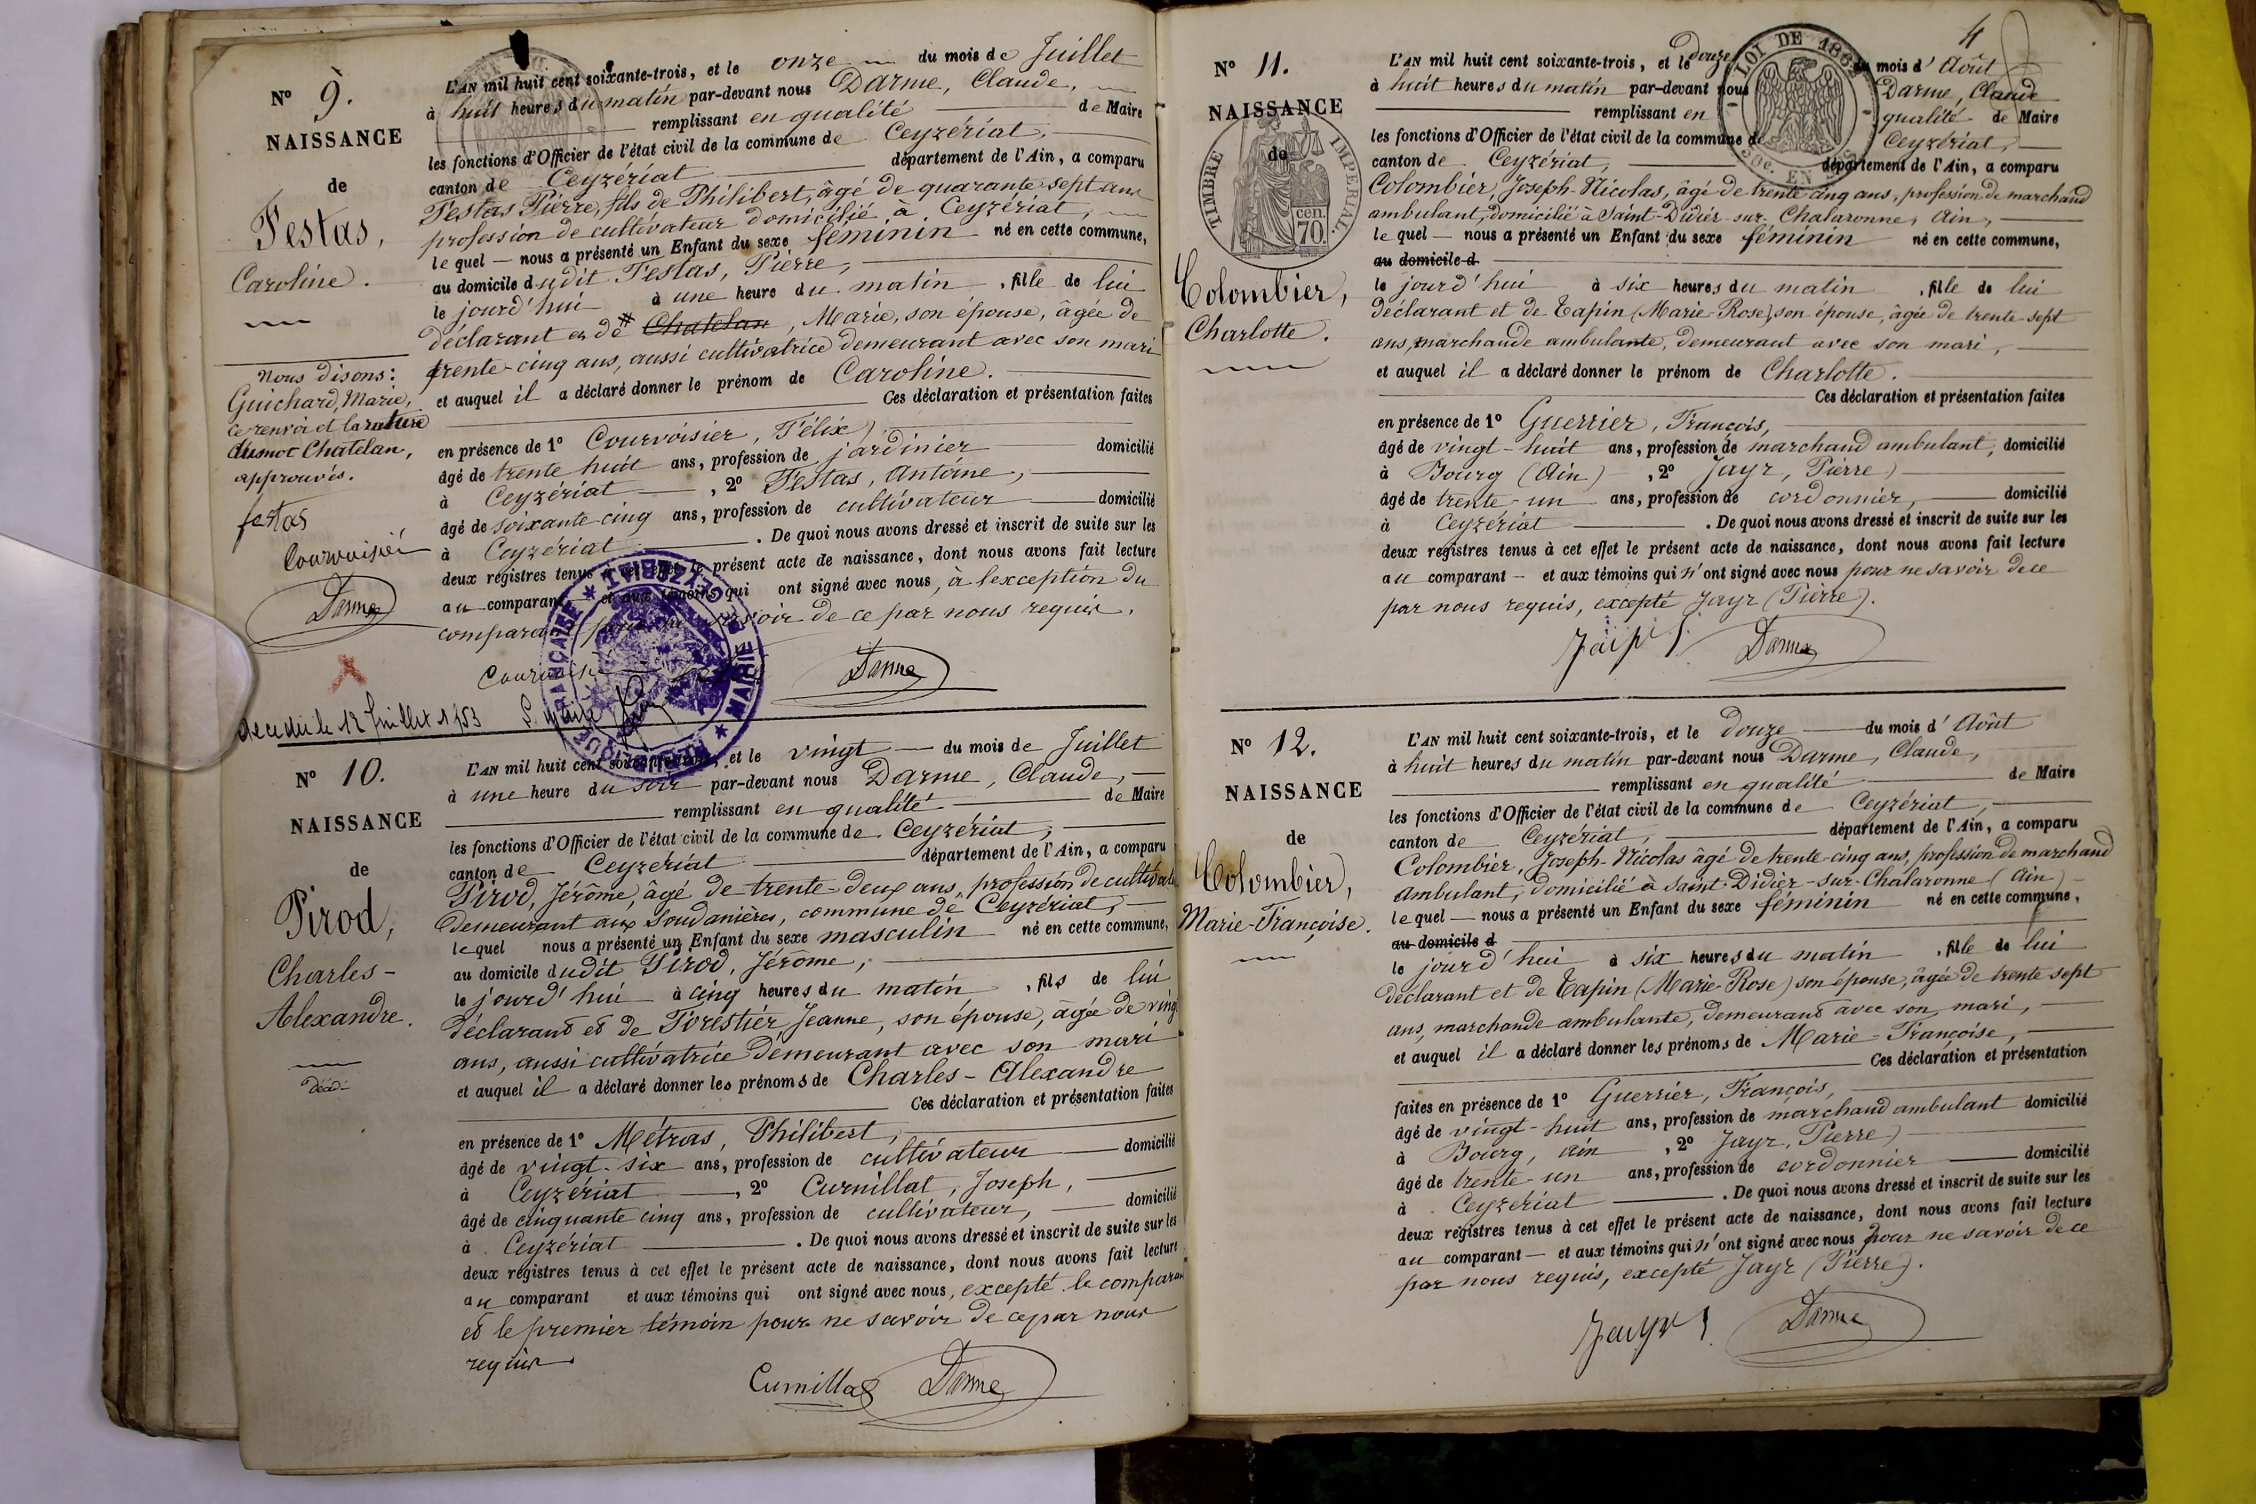 N° 9.
NAISSANCE
de
Festas,
Caroline.
Nous disons:
Guichard, Marie,
ce renvoi et la rature
du mot Chatelan,
approuvés.
festas
Courvoisier
Darme
L'AN mil huit cent soixante-trois, et le onze du mois de Juillet
à huit heures du matin par-devant nous Darme, Claude,
remplissant en qualité de Maire
les fonctions d'Officier de l'état civil de la commune de Ceyzériat,
canton de Ceyzériat département de l'Ain, a comparu
Festas Pierre, fils de Philibert, âgé de quarante-sept ans
profession de cultivateur domicilié à Ceyzériat,
lequel nous a présenté un Enfant du sexe féminin né en cette commune,
au domicile dudit Festas, Pierre,
le jourd'hui à une heure du matin, fille de lui
déclarant et de # Chatelan, Marie, son épouse, âgée de
trente-cinq ans, aussi cultivatrice demeurant avec son mari
et auquel il a déclaré donner le prénom de Caroline.
Ces déclaration et présentation faites
en présence de 1° Courvoisier, Félix,
âgé de trente huit ans, profession de jardinier domicilié
à Ceyzériat, 2° Festas, Antoine,
âgé de soixante-cinq ans, profession de cultivateur domicilié
à Ceyzériat. De quoi nous avons dressé et inscrit de suite sur les
deux registres tenus à cet effet le présent acte de naissance, dont nous avons fait lecture
au comparant et aux témoins qui ont signé avec nous, à l'exception du
comparant pour ne savoir de ce par nous requis.
Courvoisier
Darme
MAIRIE DE CEYZERIAT
RÉPUBLIQUE FRANÇAISE
décédée le 12 Juillet 1953
N° 10.
NAISSANCE
de
Pirod,
Charles-
Alexandre.
décédé
L'AN mil huit cent soixante-trois, et le vingt du mois de Juillet
à une heure du soir par-devant nous Darme, Claude,
remplissant en qualité de Maire
les fonctions d'Officier de l'état civil de la commune de Ceyzériat,
canton de Ceyzériat département de l'Ain, a comparu
Pirod, Jérôme, âgé de trente-deux ans, profession de cultivate
demeurant aux Soudanières, commune de Ceyzériat,
lequel nous a présenté un Enfant du sexe masculin né en cette commune,
au domicile dudit Pirod, Jérôme,
le jourd'hui à cinq heures du matin, fils de lui
déclarant et de Forestier Jeanne, son épouse, âgée de vingt
ans, aussi cultivatrice demeurant avec son mari
et auquel il a déclaré donner les prénoms de Charles-Alexandre
Ces déclaration et présentation faites
en présence de 1° Métras, Philibert,
âgé de vingt-six ans, profession de cultivateur domicilié
à Ceyzériat, 2° Curnillat, Joseph,
âgé de cinquante cinq ans, profession de cultivateur, domicilié
à Ceyzériat. De quoi nous avons dressé et inscrit de suite sur les
deux registres tenus à cet effet le présent acte de naissance, dont nous avons fait lecture
au comparant et aux témoins qui ont signé avec nous, excepté le comparant
et le premier témoin pour ne savoir de ce par nous
requis
Curnillat Darme
4
N° 11.
NAISSANCE
de
TIMBRE IMPERIAL
70 cen.
LOI DE 1862
50c. EN SUS
Colombier,
Charlotte.
L'AN mil huit cent soixante-trois, et le douze du mois d'Août
à huit heures du matin par-devant nous Darme, Claude
remplissant en qualité de Maire
les fonctions d'Officier de l'état civil de la commune de Ceyzériat,
canton de Ceyzériat, département de l'Ain, a comparu
Colombier, Joseph-Nicolas, âgé de trente cinq ans, profession de marchand
ambulant, domicilié à Saint-Didier-sur-Chalaronne, Ain,
lequel nous a présenté un Enfant du sexe féminin né en cette commune,
au domicile d
le jourd'hui à six heures du matin, fille de lui
déclarant et de Tapin (Marie-Rose), son épouse, âgée de trente-sept
ans, marchande ambulante, demeurant avec son mari,
et auquel il a déclaré donner le prénom de Charlotte.
Ces déclaration et présentation faites
en présence de 1° Guerrier, François,
âgé de vingt-huit ans, profession de marchand ambulant, domicilié
à Bourg (Ain), 2° Jayr, Pierre
âgé de trente-un ans, profession de cordonnier, domicilié
à Ceyzériat. De quoi nous avons dressé et inscrit de suite sur les
deux registres tenus à cet effet le présent acte de naissance, dont nous avons fait lecture
au comparant et aux témoins qui n'ont signé avec nous pour ne savoir de ce
par nous requis, excepté Jayr (Pierre).
Jayr P. Darme
N° 12.
NAISSANCE
de
Colombier,
Marie-Françoise.
L'AN mil huit cent soixante-trois, et le douze du mois d'Août
à huit heures du matin par-devant nous Darme, Claude,
remplissant en qualité de Maire
les fonctions d'Officier de l'état civil de la commune de Ceyzériat,
canton de Ceyzériat, département de l'Ain, a comparu
Colombier, Joseph-Nicolas âgé de trente-cinq ans, profession de marchand
ambulant, domicilié à Saint-Didier-sur-Chalaronne (Ain)
lequel nous a présenté un Enfant du sexe féminin né en cette commune,
au domicile d
le jourd'hui à six heures du matin, fille de lui
déclarant et de Tapin (Marie-Rose) son épouse, âgée de trente sept
ans, marchande ambulante, demeurant avec son mari,
et auquel il a déclaré donner les prénoms de Marie-Françoise,
Ces déclaration et présentation
faites en présence de 1° Guerrier, François,
âgé de vingt-huit ans, profession de marchand ambulant domicilié
à Bourg, Ain, 2° Jayr, Pierre
âgé de trente-un ans, profession de cordonnier domicilié
à Ceyzériat. De quoi nous avons dressé et inscrit de suite sur les
deux registres tenus à cet effet le présent acte de naissance, dont nous avons fait lecture
au comparant et aux témoins qui n'ont signé avec nous pour ne savoir de ce
par nous requis, excepté Jayr (Pierre).
Jayr P. Darme